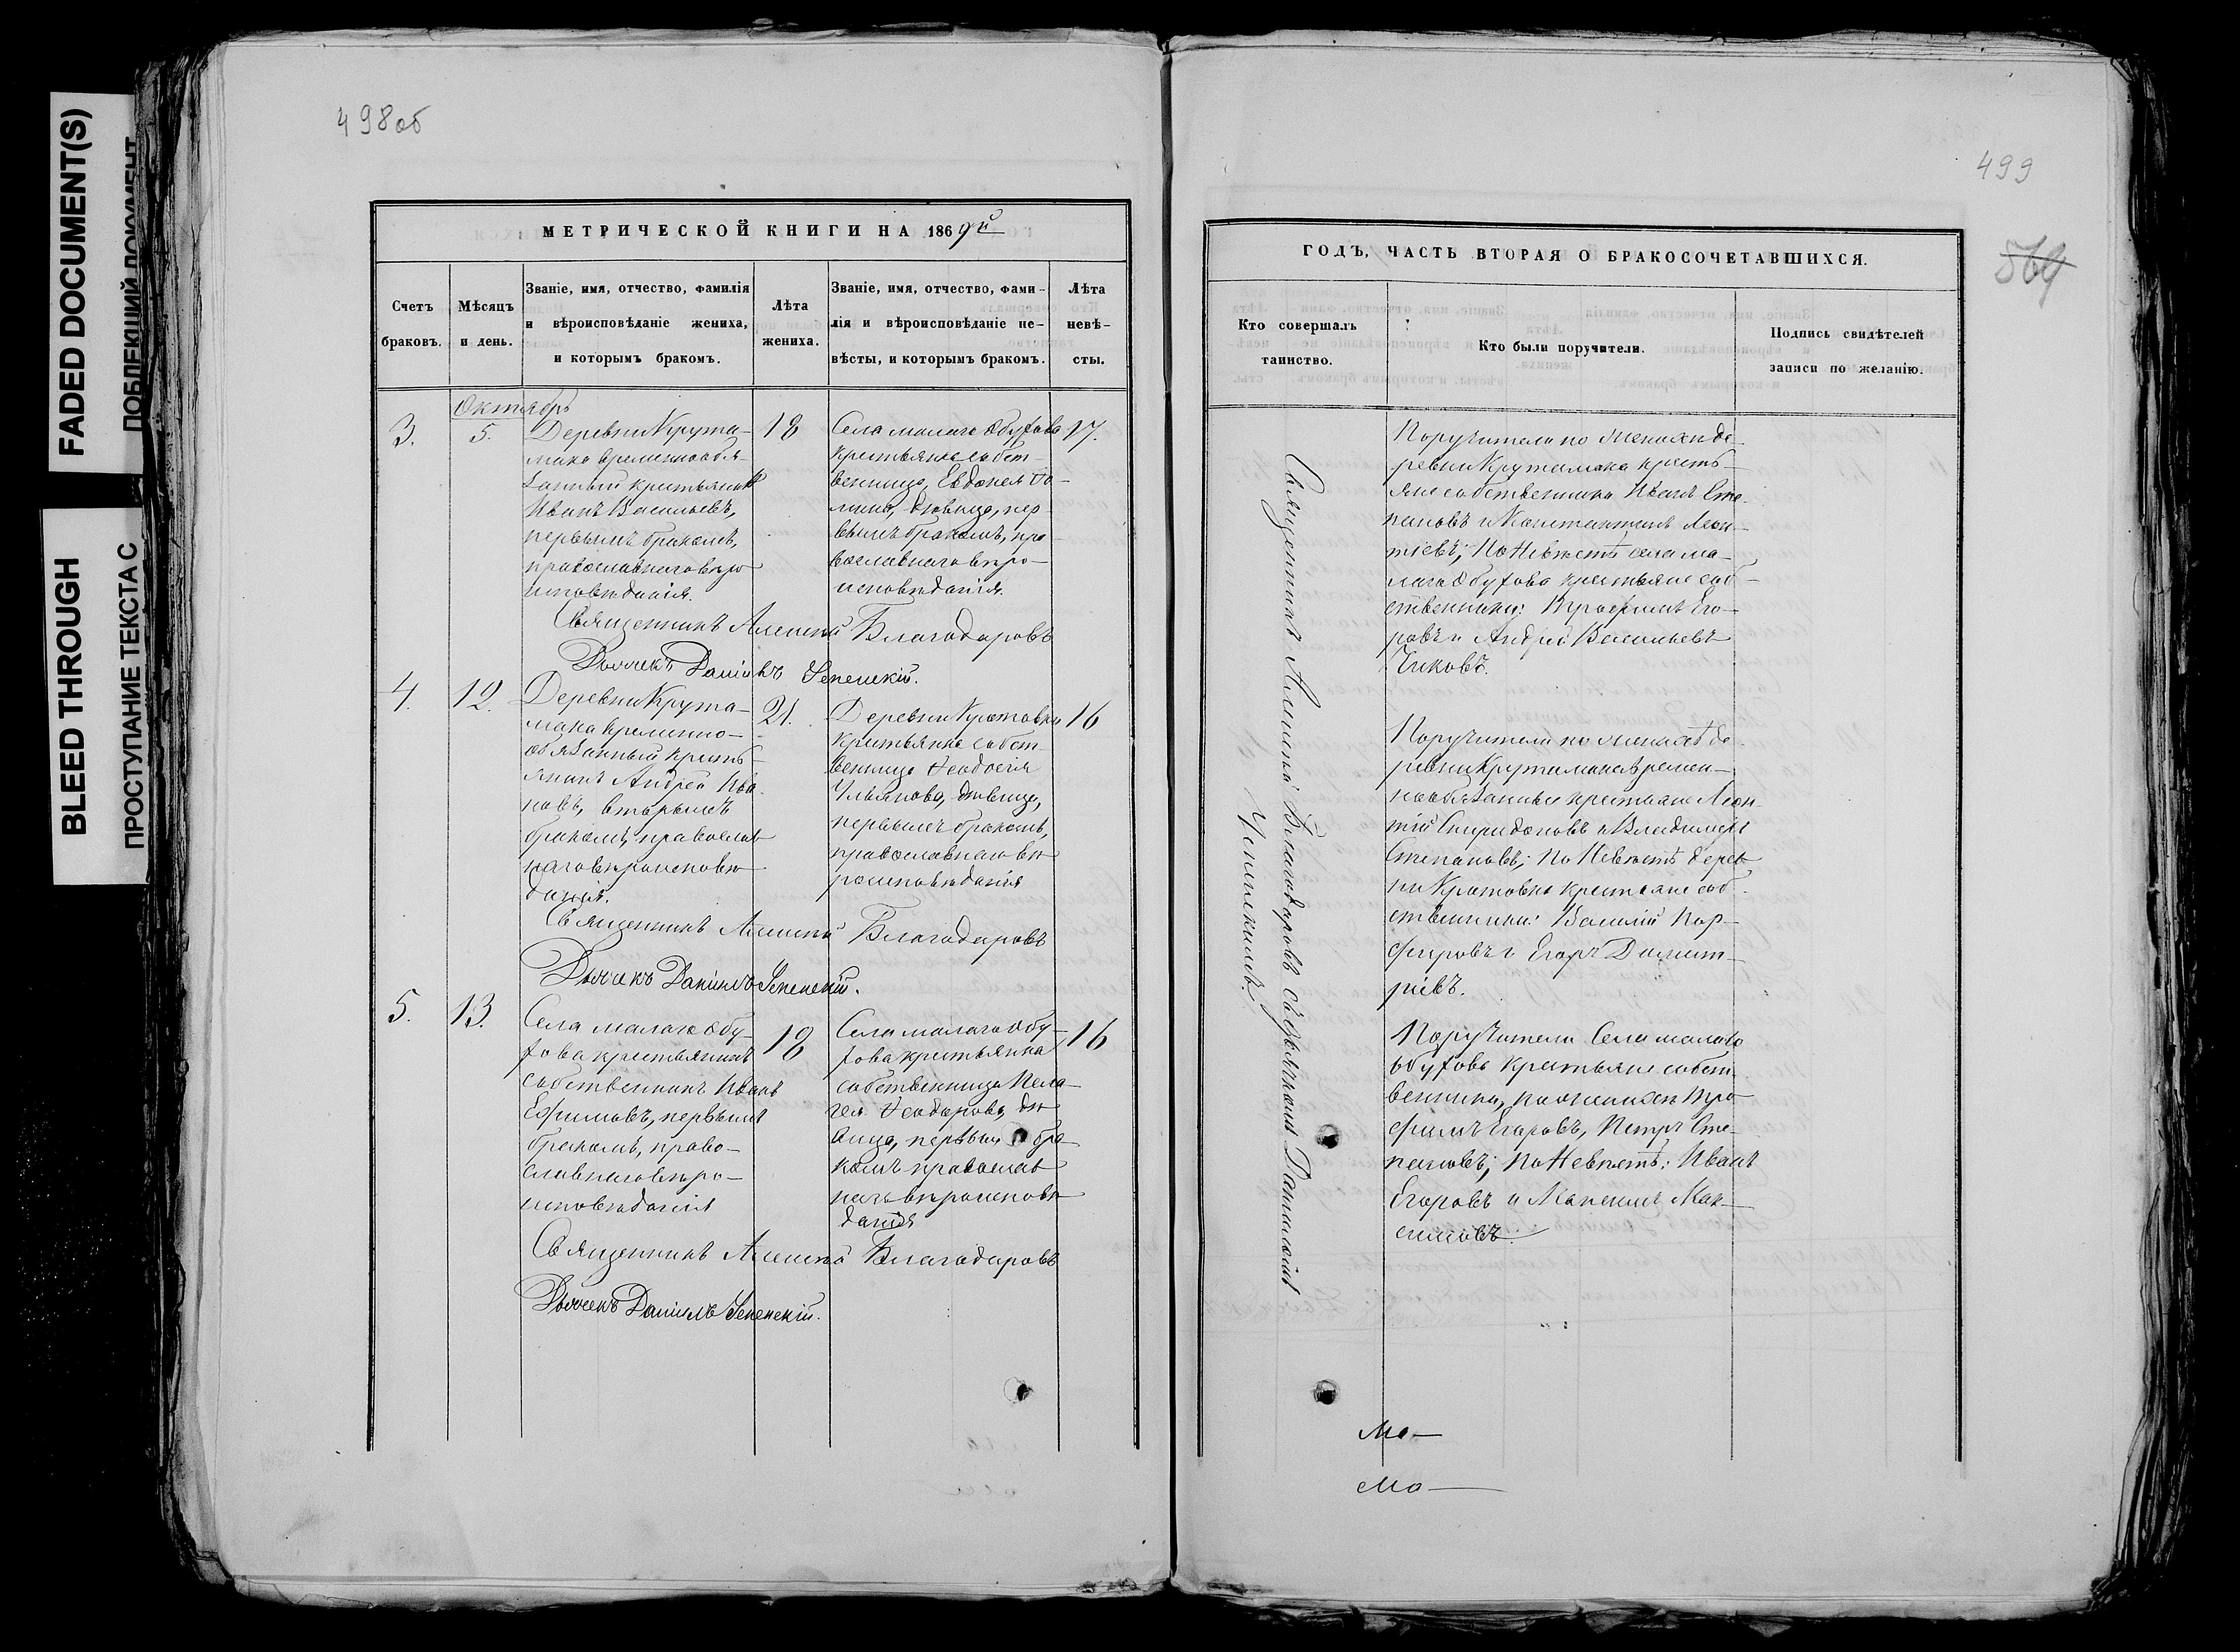 FADED DOCUMENT(S)
ПОБЛЕКШИЙ ДОКУМЕНТ
BLEED THROUGH
ПРОСТУПАНИЕ ТЕКСТА С
498об
МЕТРИЧЕСКОЙ КНИГИ НА 1869й
Счетъ браковъ.
Мѣсяцъ и день.
Званіе, имя, отчество, фамилія
и вѣроисповѣданіе жениха,
и которымъ бракомъ.
Лѣта
жениха.
Званіе, имя, отчество, фами-
лія и вѣроисповѣданіе не-
вѣсты, и которымъ бракомъ.
Лѣта
невѣ-
сты.
Октябрь
3.
5.
Деревни Крута-
мака временнообя-
занный крестьянинъ
Иванъ Васильевъ,
первымъ бракомъ,
православнаго вѣро
исповѣданія.
18
Села малаго Обухова
крестьянка собст-
венница, Евдокея Ѳо-
мина, дѣвица, пер-
вымъ бракомъ, пра
вославнаго вѣро-
исповѣданія.
17.
Священникъ Алексѣй Благодаровъ
Дьячекъ Даніилъ Успенскій.
4.
12.
Деревни Крута-
мака временно-
обязанный кресть-
янинъ Андрей Ива-
новъ, вторымъ
бракомъ, православ
наго вѣроисповѣ
данія.
21.
Деревни Кротовки
крестьянка собст
венница Ѳеодосія
Ульянова, дѣвица,
первымъ бракомъ,
православнаго вѣ
роисповѣданія
16
Священникъ Алексѣй Благодаровъ
Дьячекъ Даніилъ Успенскій.
5.
13.
Села малаго Обу-
хова крестьянинъ
собственникъ Иванъ
Ефимовъ, первымъ
бракомъ, право-
славнаго вѣро-
исповѣданія
18
Села малаго Обу-
хова крестьянка
собственница Пела-
гея Ѳеодорова, дѣ
вица, первым бра
комъ православ
наго вѣроисповѣ
данія
16
Священникъ Алексѣй Благодаровъ
Дьячекъ Даніилъ Успенскій.
499
569
ГОДЪ, ЧАСТЬ ВТОРАЯ О БРАКОСОЧЕТАВШИХСЯ.
Кто совершалъ
таинство.
Кто были поручители.
Подпись свидѣтелей
записи по желанію.
Священникъ Алексѣй Благодаровъ съ дьячкомъ Данииломъ
Успенскимъ.
Поручители по женихѣ де-
ревни Крутамака кресть-
яне собственники Иванъ Сте-
пановъ и Константинъ Леон-
тіевъ; по Невѣстѣ села ма-
лаго Обухова крестьяне соб-
ственники: Трофимъ Его-
ровъ и Андрей Васильевъ
Чиковъ.
Поручители по женихѣ де-
ревни Крутамака времен-
нообязанные крестьяне Леон
тій Спиридоновъ и Владимеръ
Степановъ; по Невѣстѣ дерев
ни Кротовки крестьяне соб-
ственники: Василій Пор-
фировъ и Егоръ Димит-
ріевъ.
Поручители Села малаго
Обухова крестьяне собст
венники, по женихѣ Тро
фимъ Егоровъ, Петръ Сте-
пановъ; по Невѣстѣ: Иванъ
Егоровъ и Максимъ Мак-
симовъ.
Мо-
Мо-